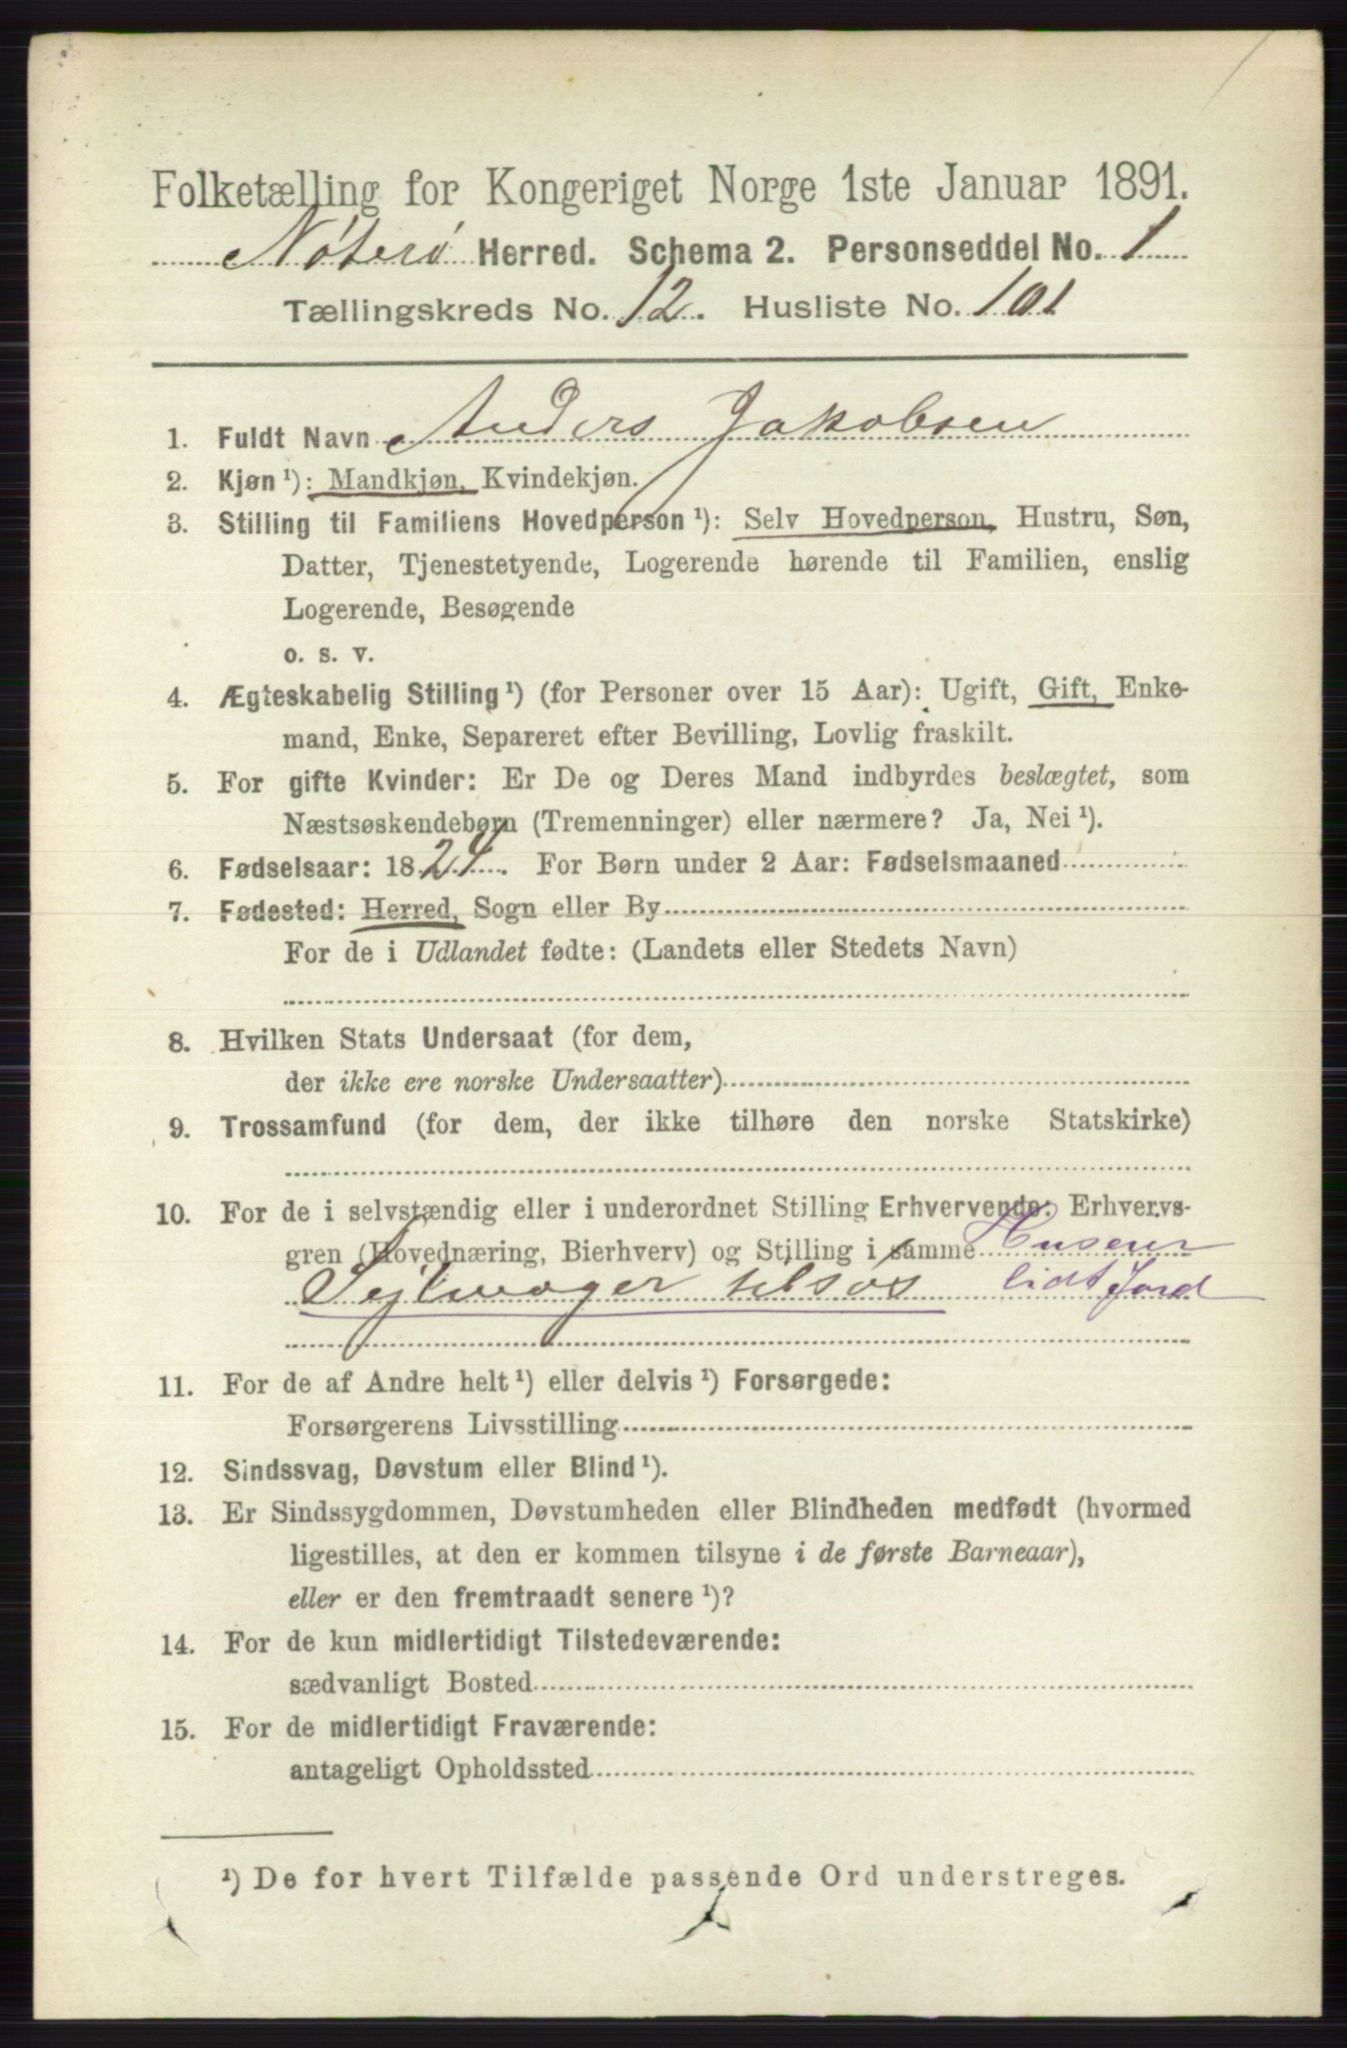 Folketælling for Kongeriget Norge 1ste Januar 1891.
Nøterø Herred. Schema 2. Personseddel No. 1
Tællingskreds No. 12. Husliste No. 101
1. Fuldt Navn Anders Jakobsen
2. Kjøn ¹): Mandkjøn, Kvindekjøn.
3. Stilling til Familiens Hovedperson ¹): Selv Hovedperson, Hustru, Søn,
Datter, Tjenestetyende, Logerende hørende til Familien, enslig
Logerende, Besøgende
o. s. v.
4. Ægteskabelig Stilling ¹) (for Personer over 15 Aar): Ugift, Gift, Enke-
mand, Enke, Separeret efter Bevilling, Lovlig fraskilt.
5. For gifte Kvinder: Er De og Deres Mand indbyrdes beslægtet, som
Næstsøskendebørn (Tremenninger) eller nærmere? Ja, Nei ¹).
6. Fødselsaar: 1824. For Børn under 2 Aar: Fødselsmaaned
7. Fødested: Herred, Sogn eller By
For de i Udlandet fødte: (Landets eller Stedets Navn)
8. Hvilken Stats Undersaat (for dem,
der ikke ere norske Undersaatter)
9. Trossamfund (for dem, der ikke tilhøre den norske Statskirke)
10. For de i selvstændig eller i underordnet Stilling Erhvervende: Erhvervs-
gren (Hovednæring, Bierhverv) og Stilling i samme Huseier
Sejlmager tilsøs lidt Jord
11. For de af Andre helt ¹) eller delvis ¹) Forsørgede:
Forsørgerens Livsstilling
12. Sindssvag, Døvstum eller Blind ¹).
13. Er Sindssygdommen, Døvstumheden eller Blindheden medfødt (hvormed
ligestilles, at den er kommen tilsyne i de første Barneaar),
eller er den fremtraadt senere ¹)?
14. For de kun midlertidigt Tilstedeværende:
sædvanligt Bosted
15. For de midlertidigt Fraværende:
antageligt Opholdssted
¹) De for hvert Tilfælde passende Ord understreges.